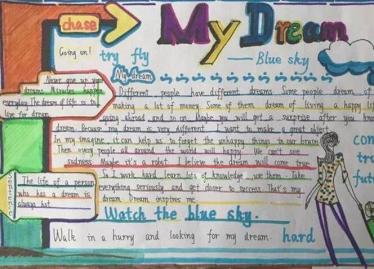 chase
My Dream
Going on!
try fly
Blue sky
My dream
Never give up your
dreams. Miracles happen
everyday. The dream of life is to
live for dream.
Different people have different dreams. Some people dream of
making a lot of money. Some of them dream of living a happy life
going abroad and so on. Maybe you will get a surprise after you know
dream. Because my dream is very different. I want to make a great
In my imagine, it can help us to forget the unhappy things in our brain
Then every people all around the world will happy. We can't see
sadness. Maybe it's a robot. I believe the dream will come true
So I work hard, learn lots of knowledge, use them. Take
everything seriously and get closer to success. That's my
dream. Dream inspires me.
The life of a person
who has a dream is
always hot.
sentence
Watch the blue sky.
Walk in a hurry and looking for my dream.
hard